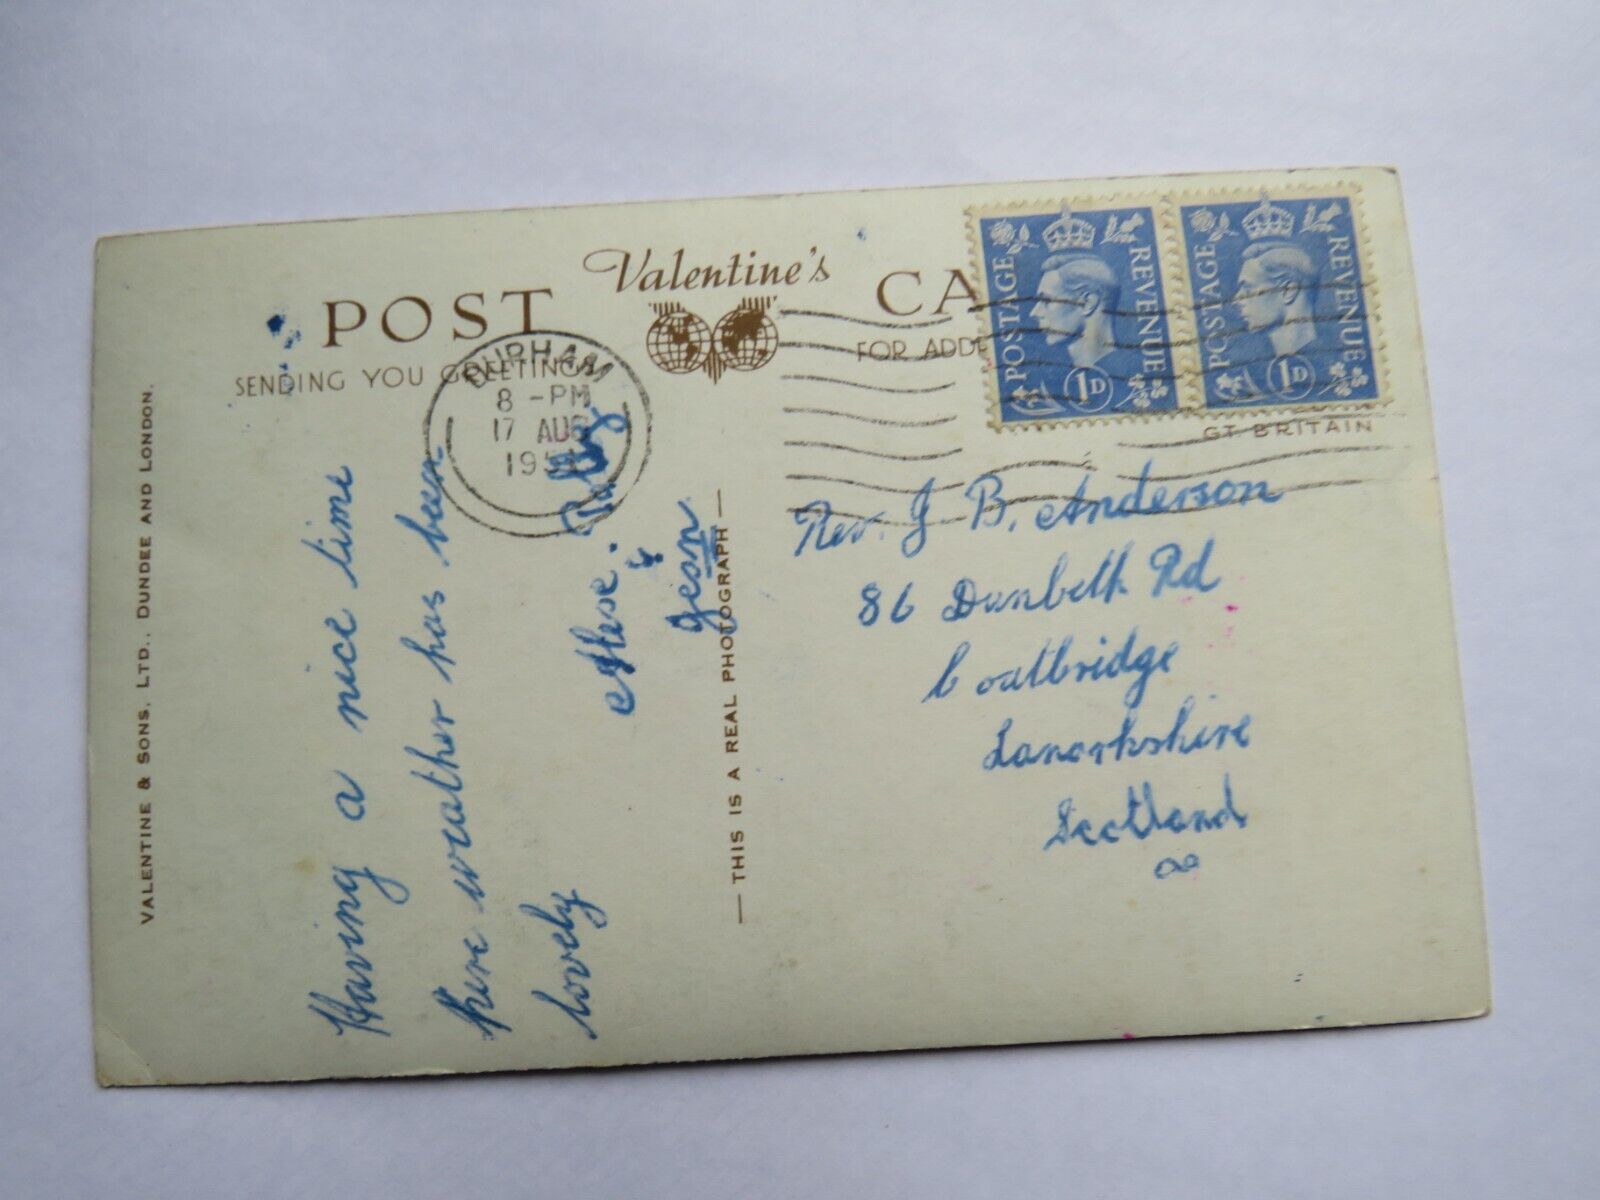 POST Valentine's CA
SENDING YOU GREETINGS FOR ADD
DURHAM
8 - PM
17 AUG
195
POSTAGE REVENUE
1D
POSTAGE REVENUE
1D
GT. BRITAIN
VALENTINE & SONS, LTD., DUNDEE AND LONDON.
Having a nice time
here weather has been
lovely
&
Jean
— THIS IS A REAL PHOTOGRAPH —
Rev. J B. Anderson
86 Dunbeth Rd
Coatbridge
Lanarkshire
Scotland